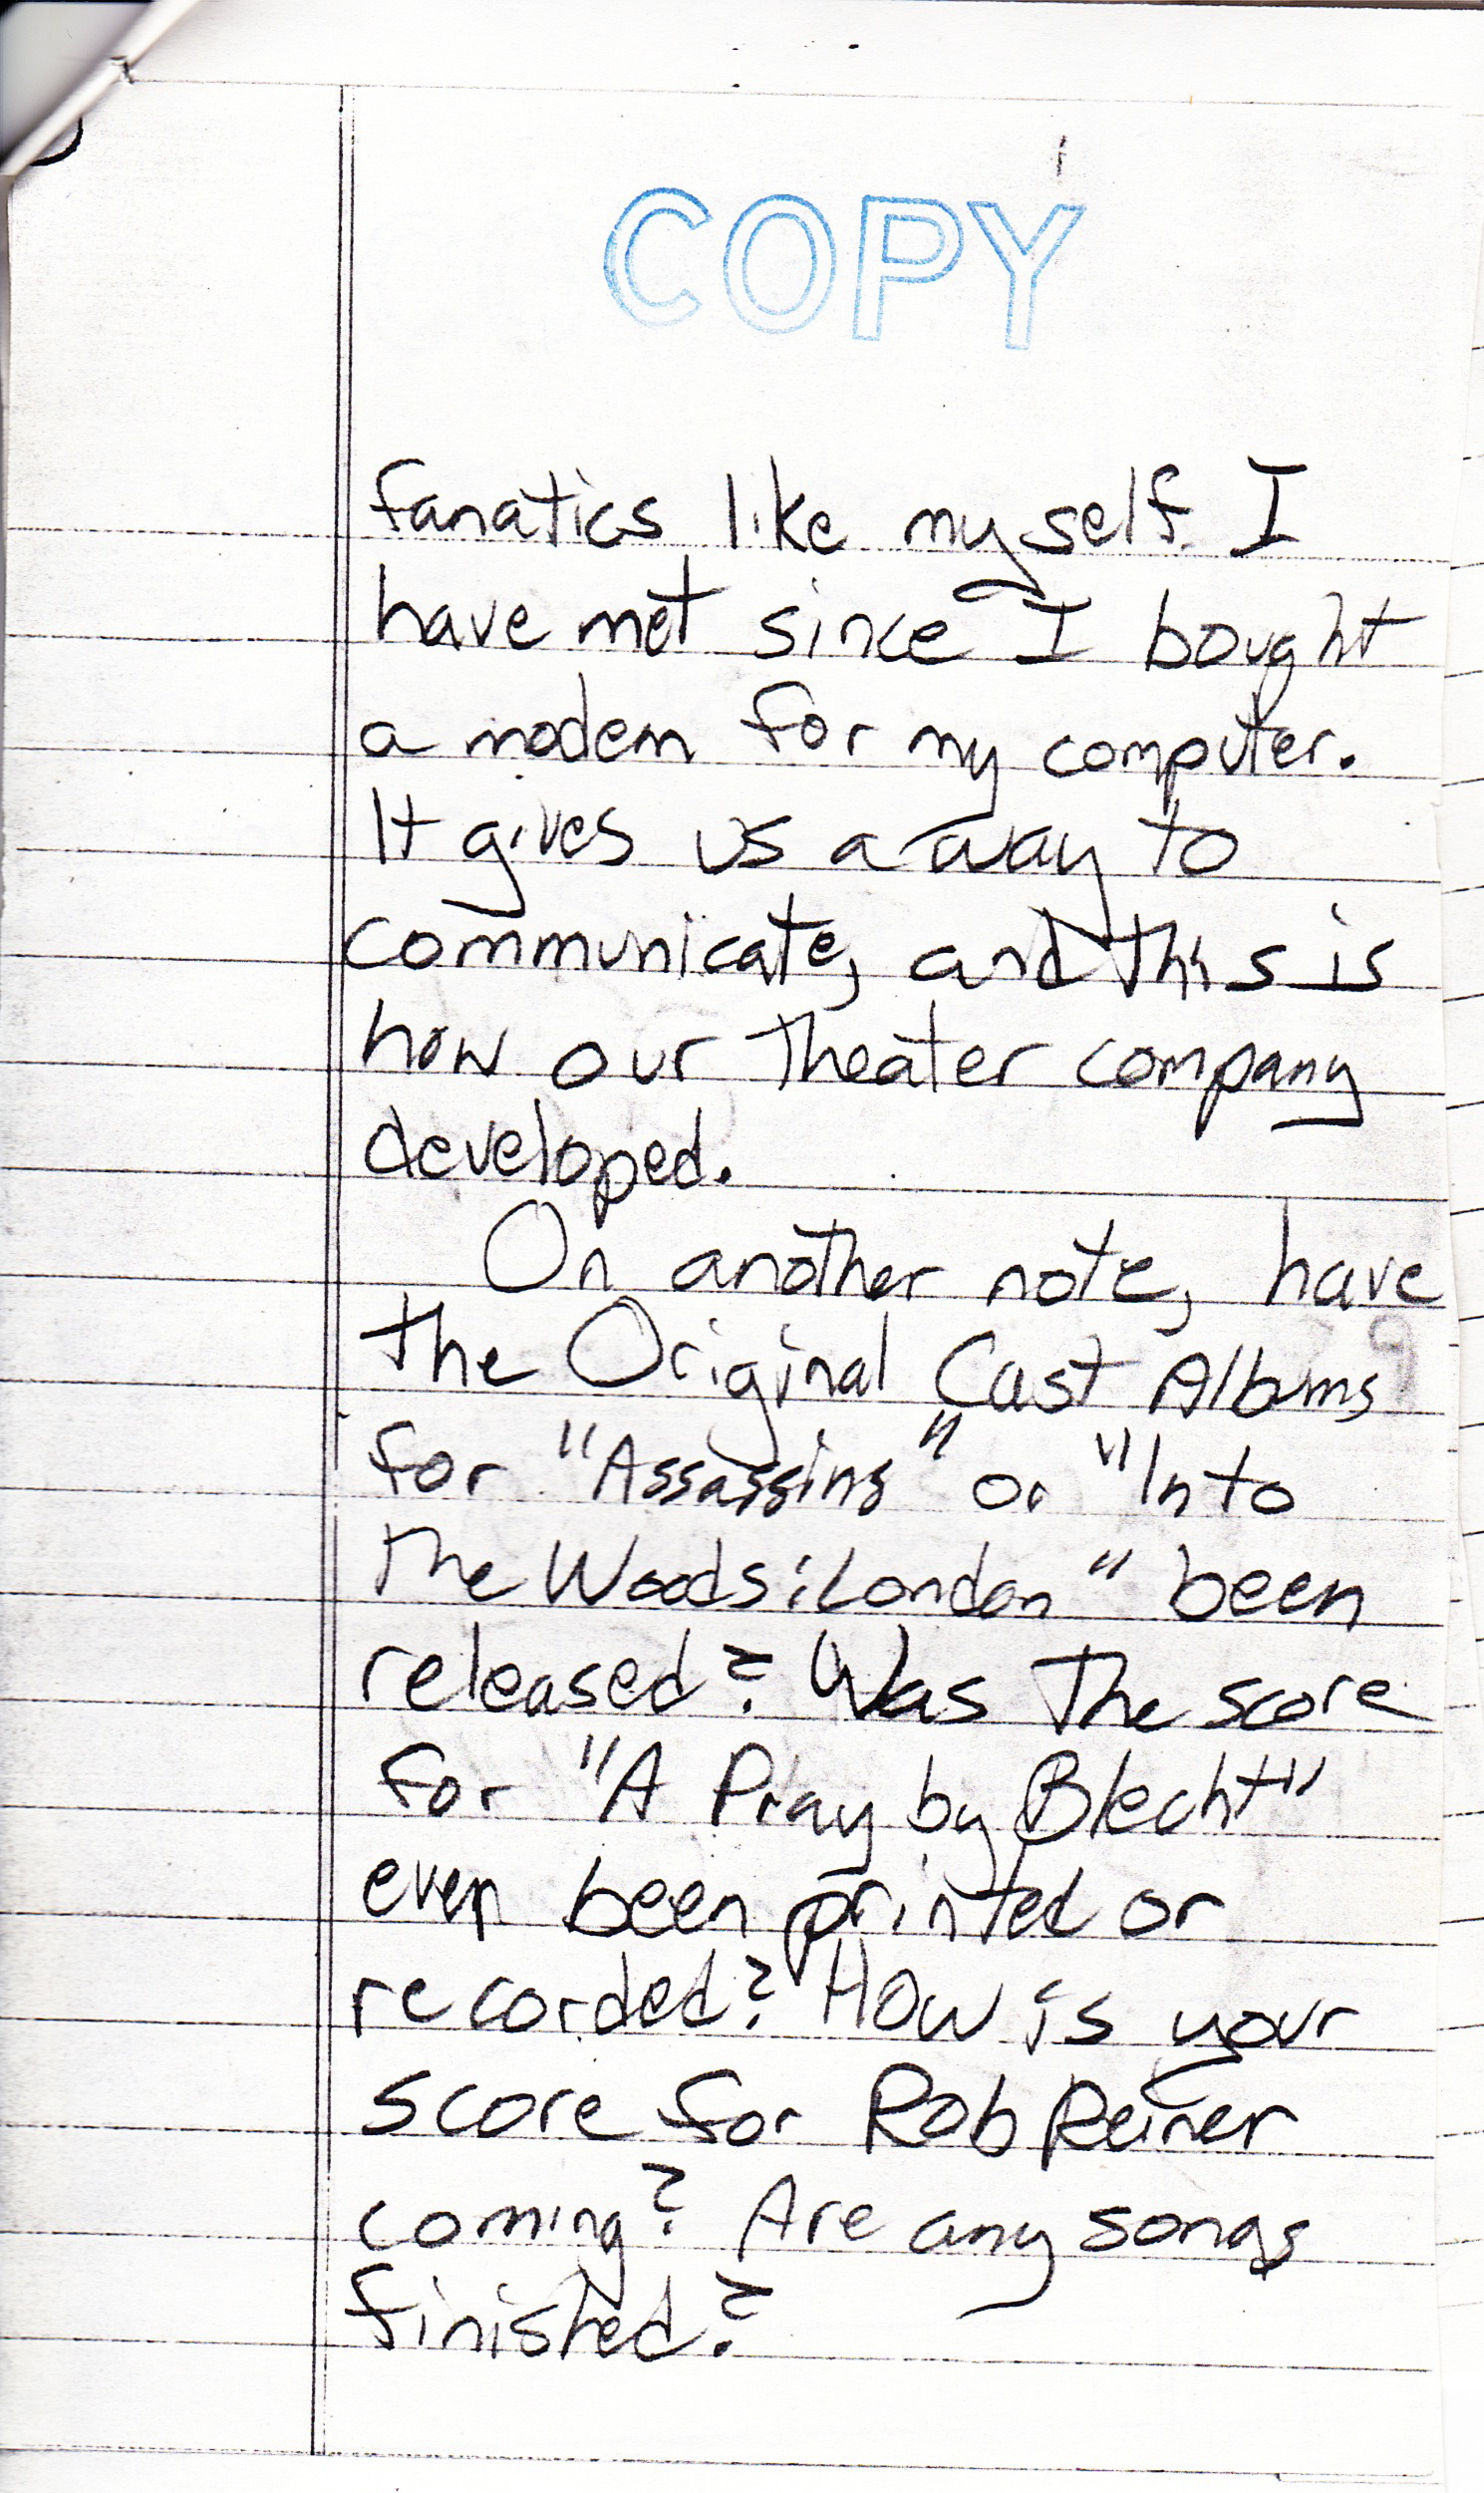 COPY
fanatics like myself I
have met since I bought
a modem for my computer.
It gives us a way to
communicate, and this is
how our theater company
developed.
On another note, have
the Original Cast Albums
for "Assassins" or "Into
the Woods: London" been
released? Was the score
for "A Pray by Blecht"
ever been printed or
recorded? How is your
score for Rob Reiner
coming? Are any songs
finished?